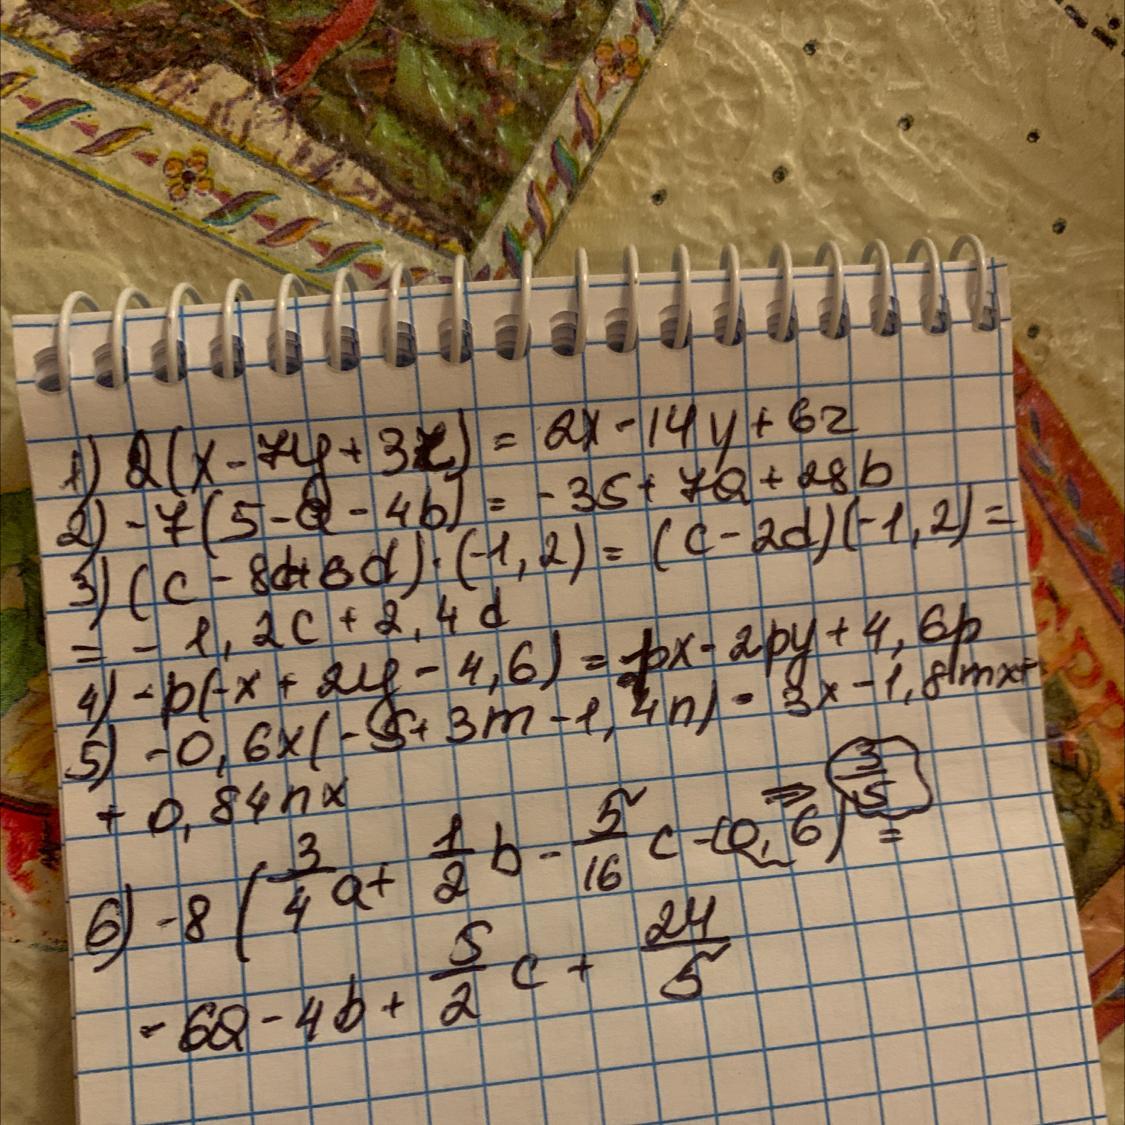 1) 2(x - 7y + 3z) = 2x - 14y + 6z
2) -7(5 - a - 4b) = -35 + 7a + 28b
3) (c - 8d + 6d) · (-1,2) = (c - 2d)(-1,2) =
= - 1,2c + 2,4d
4) -p(-x + 2y - 4,6) = px - 2py + 4,6p
5) -0,6x(-5 + 3m - 1,4n) = 3x - 1,8mx +
+ 0,84nx
6) -8 (3/4 a + 1/2 b - 5/16 c - 0,6) ⇒ 3/5 =
- 6a - 4b + 5/2 c + 24/5